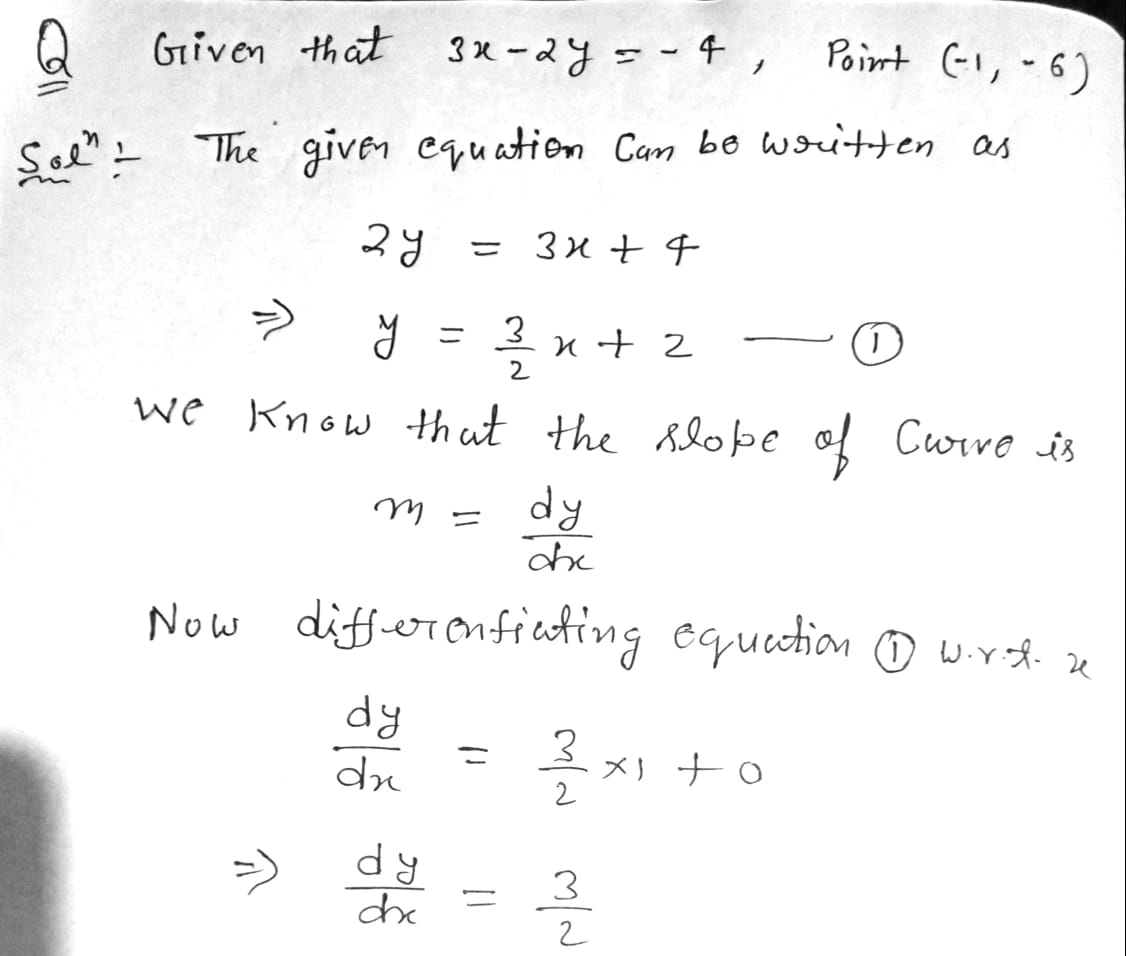 Q Given that 3x - 2y = - 4, Point (-1, - 6)
Solⁿ :- The given equation Can be written as
2y = 3x + 4
⇒ y = 3/2 x + 2 — ①
we Know that the slope of Curve is
m = dy/dx
Now differentiating equation ① w.r.t. x
dy/dx = 3/2 ×1 + 0
⇒ dy/dx = 3/2